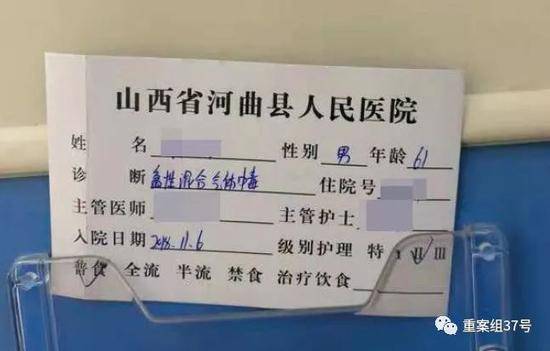 山西省河曲县人民医院
姓 名 性别 男 年龄 61
诊 断 急性混合气体中毒 住院号
主管医师 主管护士
入院日期 2018.11.6 级别护理 特 I II III
普食 全流 半流 禁食 治疗饮食
重案组37号